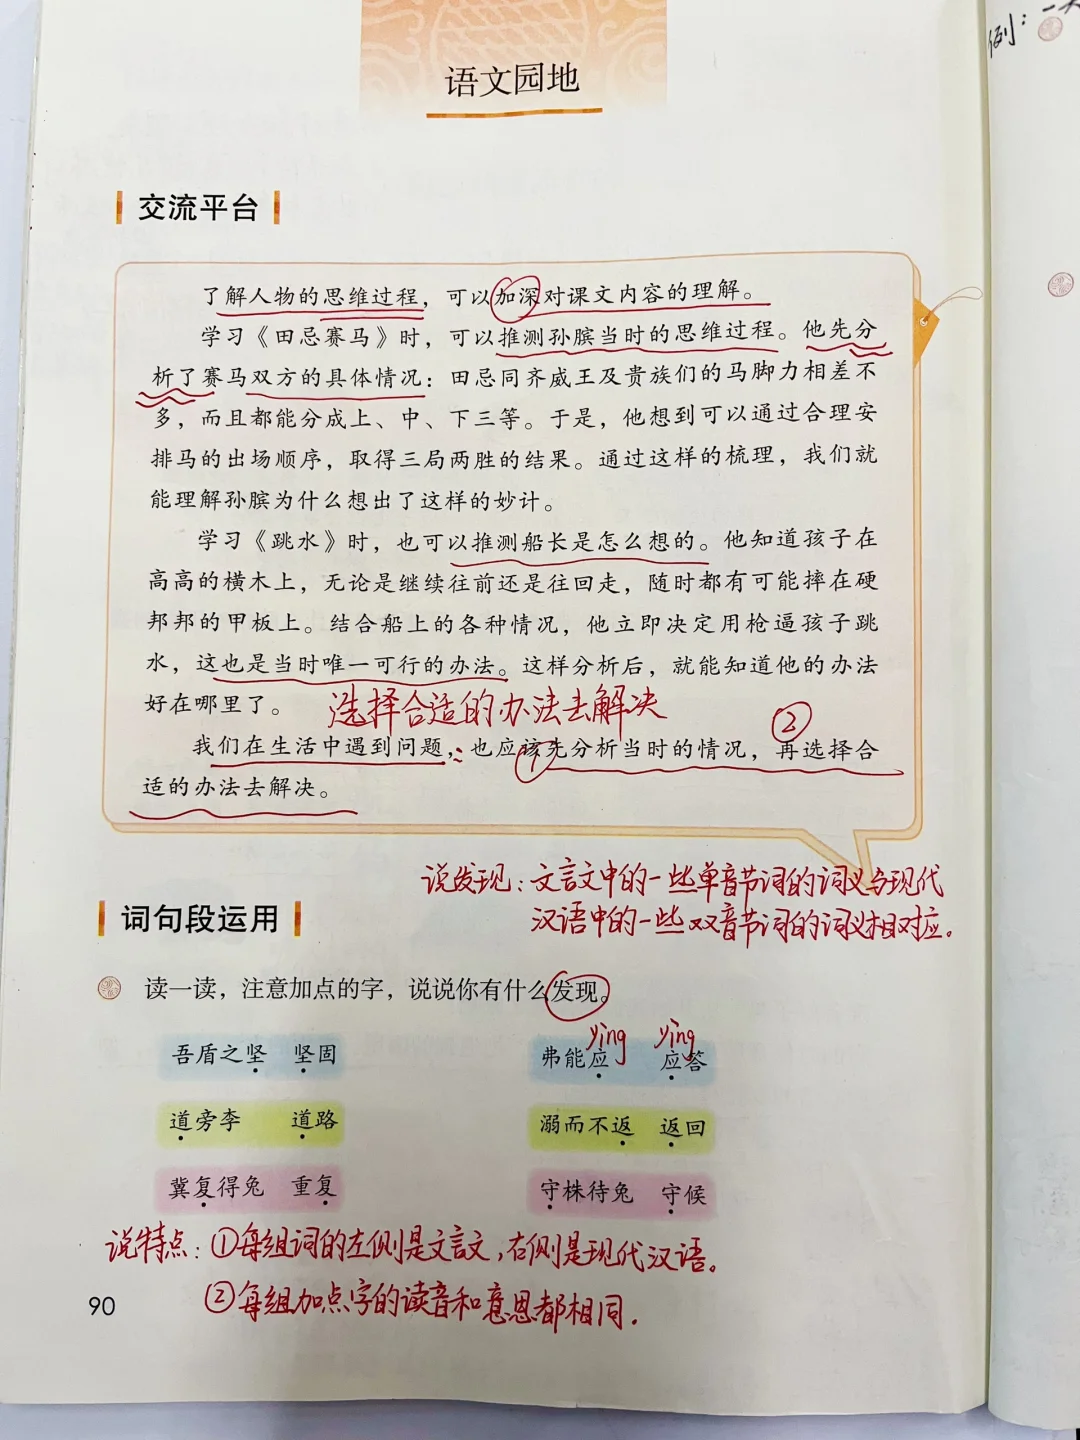 例：一
语文园地
交流平台
了解人物的思维过程，可以加深对课文内容的理解。
学习《田忌赛马》时，可以推测孙膑当时的思维过程。他先分
析了赛马双方的具体情况：田忌同齐威王及贵族们的马脚力相差不
多，而且都能分成上、中、下三等。于是，他想到可以通过合理安
排马的出场顺序，取得三局两胜的结果。通过这样的梳理，我们就
能理解孙膑为什么想出了这样的妙计。
学习《跳水》时，也可以推测船长是怎么想的。他知道孩子在
高高的横木上，无论是继续往前还是往回走，随时都有可能摔在硬
邦邦的甲板上。结合船上的各种情况，他立即决定用枪逼孩子跳
水，这也是当时唯一可行的办法。这样分析后，就能知道他的办法
好在哪里了。 选择合适的办法去解决
②
我们在生活中遇到问题，也应该先分析当时的情况，再选择合
①
适的办法去解决。
说发现：文言文中的一些单音节词的词义与现代
汉语中的一些双音节词的词义相对应。
词句段运用
读一读，注意加点的字，说说你有什么发现。
yìng yìng
吾盾之坚 坚固 弗能应 应答
道旁李 道路 溺而不返 返回
冀复得兔 重复 守株待兔 守候
说特点：①每组词的左侧是文言文，右侧是现代汉语。
②每组加点字的读音和意思都相同.
90